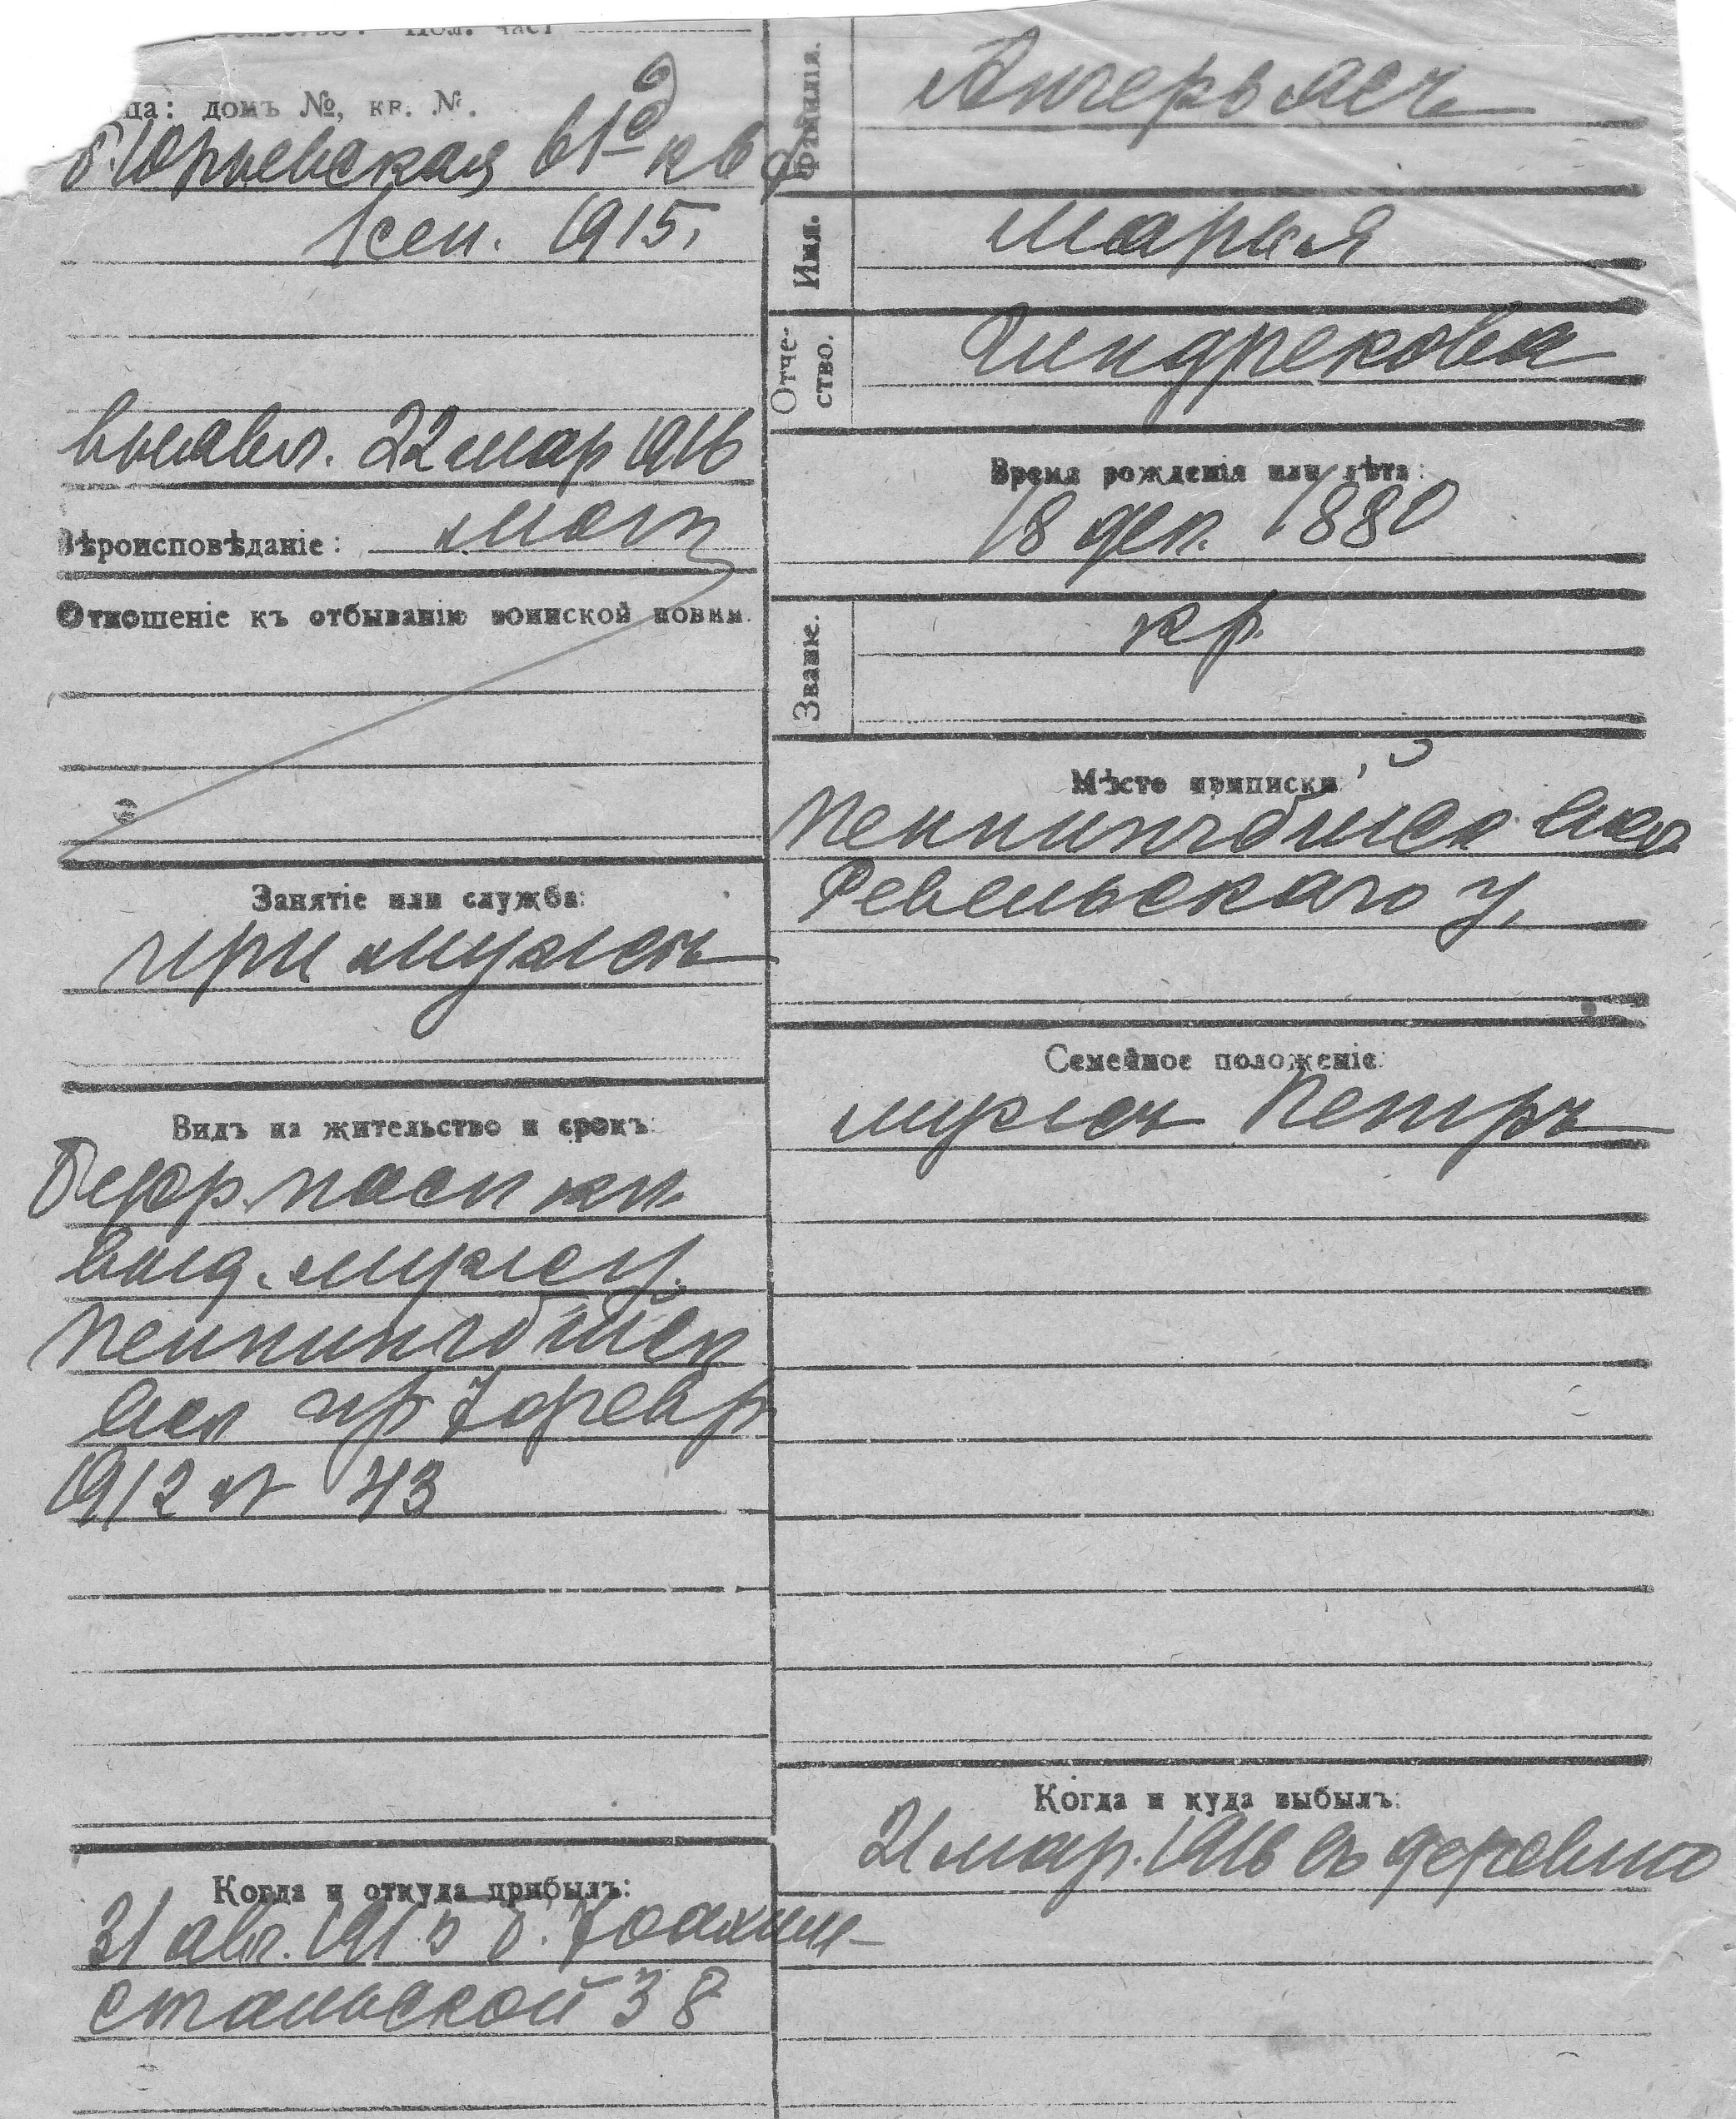 Пол. част
ца: домъ №, кв. №.
б. Юрьевская 61 кв 9
1 сен. 1915.
выявл. 22 мар 1916
Вѣроисповѣданіе: лют
Отношеніе къ отбыванію воинской повин.
Занятіе или служба:
при мужѣ
Видъ на жительство и срокъ:
Безср. пасп кн.
выд. мужу.
Пеннингбійск
вол пр 7 февр
1912 № 43
Когда и откуда прибылъ:
31 авг. 1915 б. Іоахим-
стальской 38
Фамилія.
Ангерьясъ
Имя.
Марья
Отче-
ство.
Гиндрекова
Время рожденія или лѣта:
18 дек. 1880
Званіе.
кр.
Мѣсто приписки
Пеннингбійск. вол
Ревельскаго у.
Семейное положеніе:
мужъ Петръ
Когда и куда выбылъ:
21 мар. 1916 въ деревню